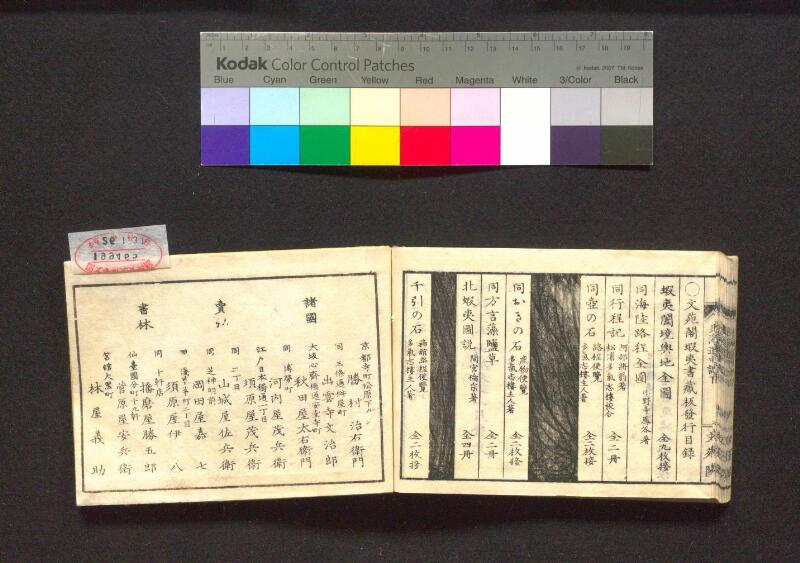 Kodak Color Control Patches
© Kodak, 2007 TM: Kodak
Blue Cyan Green Yellow Red Magenta White 3/Color Black
〇文苑閣蝦夷書蔵板發行目録
蝦夷闔境輿地全圖 全九枚接
同海陸路程全圖 小野寺鳳谷著
同行程記 阿部將翁著 松浦多氣志樓校合 全二冊
同壺の石 路程便覽 多氣志樓主人著 全二枚接
同おきの石 産物便覽 多氣志樓主人著 全二枚接
同方言藻鹽草 全二冊
北蝦夷圖説 間宮倫宗著 全四冊
千引の石 箱館路程便覽 多氣志樓主人著 全二枚接
諸國
賣
書林
京都寺町松原下ル 勝村治右衛門
同三條通升屋町 出雲寺文治郎
大坂心齋橋通安堂寺町 秋田屋太右衛門
同博勞町 河内屋茂兵衛
江戸日本橋通一丁目 須原屋茂兵衛
同二丁目 山城屋佐兵衛
同芝神明前 岡田屋嘉七
須原屋伊八
同十軒店 播磨屋勝五郎
仙臺國分町十九軒 菅原屋安兵衛
箱館大黒町 林屋義助